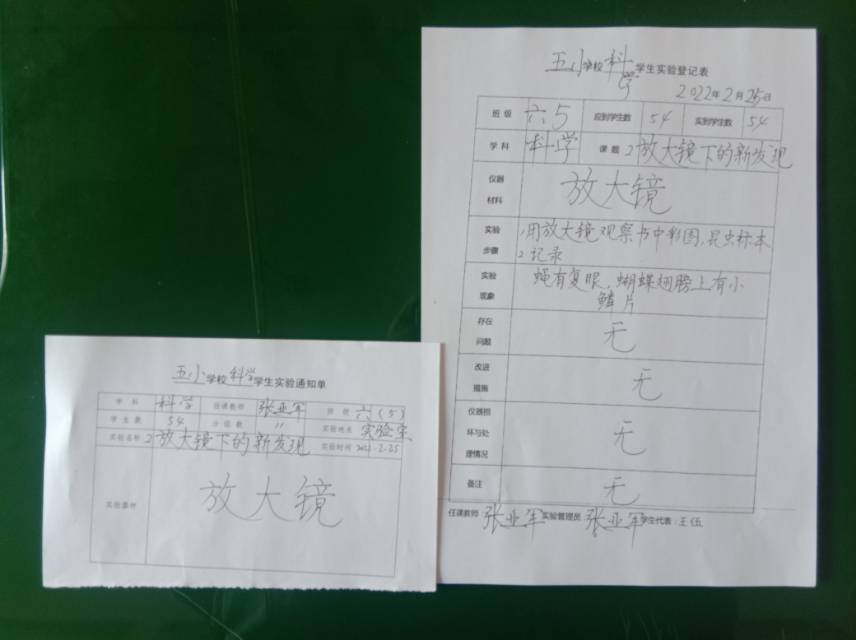 五小学校科学学生实验通知单
学 科 科学 任课教师 张亚军 班 级 六(5)
学 生 数 54 分 组 数 11 实验地点 实验室
实验名称 2放大镜下的新发现 实验时间 2022.2.25
实验器材 放大镜
五小学校科学学生实验登记表
2022年2月25日
班 级 六5 应到学生数 54 实到学生数 54
学 科 科学 课 题 2放大镜下的新发现
仪器
材料
放大镜
实验
步骤
1用放大镜观察书中彩图,昆虫标本
2记录
实验
现象
蝇有复眼,蝴蝶翅膀上有小
鳞片
存在
问题
无
改进
措施
无
仪器损
坏与处
理情况
无
备注 无
任课教师 张亚军 实验管理员:张亚军 学生代表:王